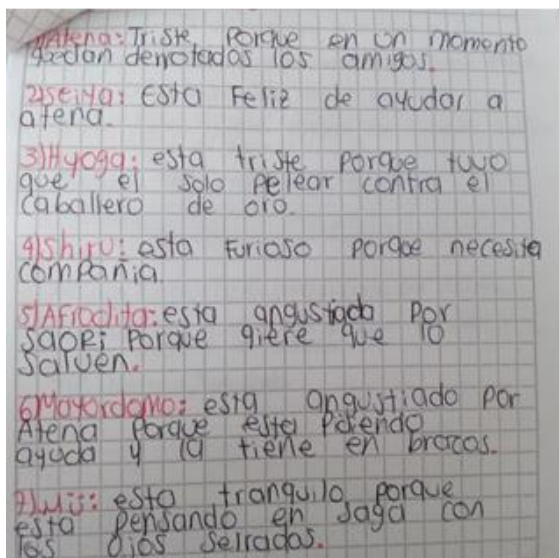 1)Atena: Triste, Porque en un momento
qedan derrotados los amigos.
2)seiya: Esta Feliz de ayudar a
atena.
3)Hyoga: esta triste porque tuvo
que el solo pelear contra el
caballero de oro.
4)Shiru: esta furioso porqoe necesita
compañia
5)Afrodita: esta angustiado por
saori porque qiere que lo
salven.
6)Mayordomo: esta angustiado por
Atena porque esta pidendo
ayuda y la tiene en brazos.
esta tranquilo porque
esta pensando en saga con
los ojos serrados.